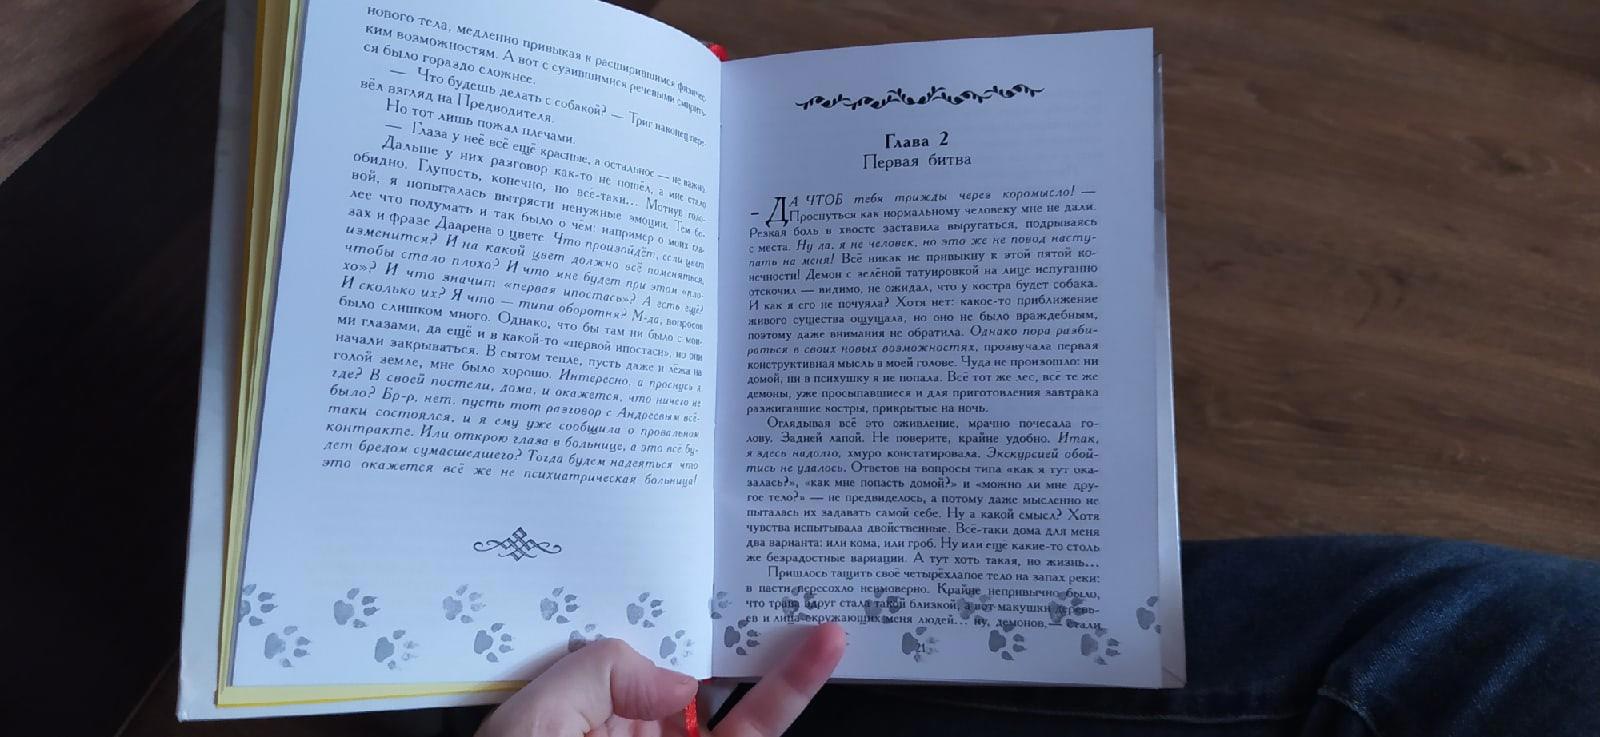 нового тела, медленно привыкая к расширившимся физичес-
ким возможностям. А вот с сузившимися речевыми смирить-
ся было гораздо сложнее.
— Что будешь делать с собакой? — Триг наконец пере-
вёл взгляд на Предводителя.
Но тот лишь пожал плечами.
— Глаза у неё всё ещё красные, а остальное — не важно.
Дальше у них разговор как-то не пошёл, а мне стало
обидно. Глупость, конечно, но всё-таки... Мотнув голо-
вой, я попыталась вытрясти ненужные эмоции. Тем бо-
лее что подумать и так было о чём: например о моих гла-
зах и фразе Даарена о цвете. Что произойдёт, если цвет
изменится? И на какой цвет должно всё поменяться,
чтобы стало плохо? И что мне будет при этом «пло-
хо»? И что значит «первая ипостась»? А есть ещё?
И сколько их? Я что — типа оборотня? М-да, вопросов
было слишком много. Однако, что бы там ни было с мои-
ми глазами, да ещё и в какой-то «первой ипостаси», но они
начали закрываться. В сытом тепле, пусть даже и лёжа на
голой земле, мне было хорошо. Интересно, а проснусь я
где? В своей постели, дома, и окажется, что ничего не
было? Бр-р, нет, пусть тот разговор с Андреевым всё-
таки состоялся, и я ему уже сообщила о провальном
контракте. Или открою глаза в больнице, а это всё бу-
дет бредом сумасшедшего? Тогда будем надеяться что
это окажется всё же не психиатрическая больница!
Глава 2
Первая битва
– ДА ЧТОБ тебя трижды через коромысло! —
Проснуться как нормальному человеку мне не дали.
Резкая боль в хвосте заставила выругаться, подрываясь
с места. Ну да, я не человек, но это же не повод насту-
пать на меня! Всё никак не привыкну к этой пятой ко-
нечности! Демон с зелёной татуировкой на лице испуганно
отскочил — видимо, не ожидал, что у костра будет собака.
И как я его не почуяла? Хотя нет: какое-то приближение
живого существа ощущала, но оно не было враждебным,
поэтому даже внимания не обратила. Однако пора разби-
раться в своих новых возможностях, прозвучала первая
конструктивная мысль в моей голове. Чуда не произошло: ни
домой, ни в психушку я не попала. Всё тот же лес, всё те же
демоны, уже просыпавшиеся и для приготовления завтрака
разжигавшие костры, прикрытые на ночь.
Оглядывая всё это оживление, мрачно почесала го-
лову. Задней лапой. Не поверите, крайне удобно. Итак,
я здесь надолго, хмуро констатировала. Экскурсией обой-
тись не удалось. Ответов на вопросы типа «как я тут ока-
залась?», «как мне попасть домой?» и «можно ли мне дру-
гое тело?» — не предвиделось, а потому даже мысленно не
пыталась их задавать самой себе. Ну а какой смысл? Хотя
чувства испытывала двойственные. Всё-таки дома для меня
два варианта: или кома, или гроб. Ну или ещё какие-то столь
же безрадостные вариации. А тут хоть такая, но жизнь...
Пришлось тащить своё четырёхлапое тело на запах реки:
в пасти пересохло неимоверно. Крайне непривычно было,
что трава вдруг стала такой близкой, а вот макушки деревь-
ев и лица окружающих меня людей... ну, демонов, — стали
21